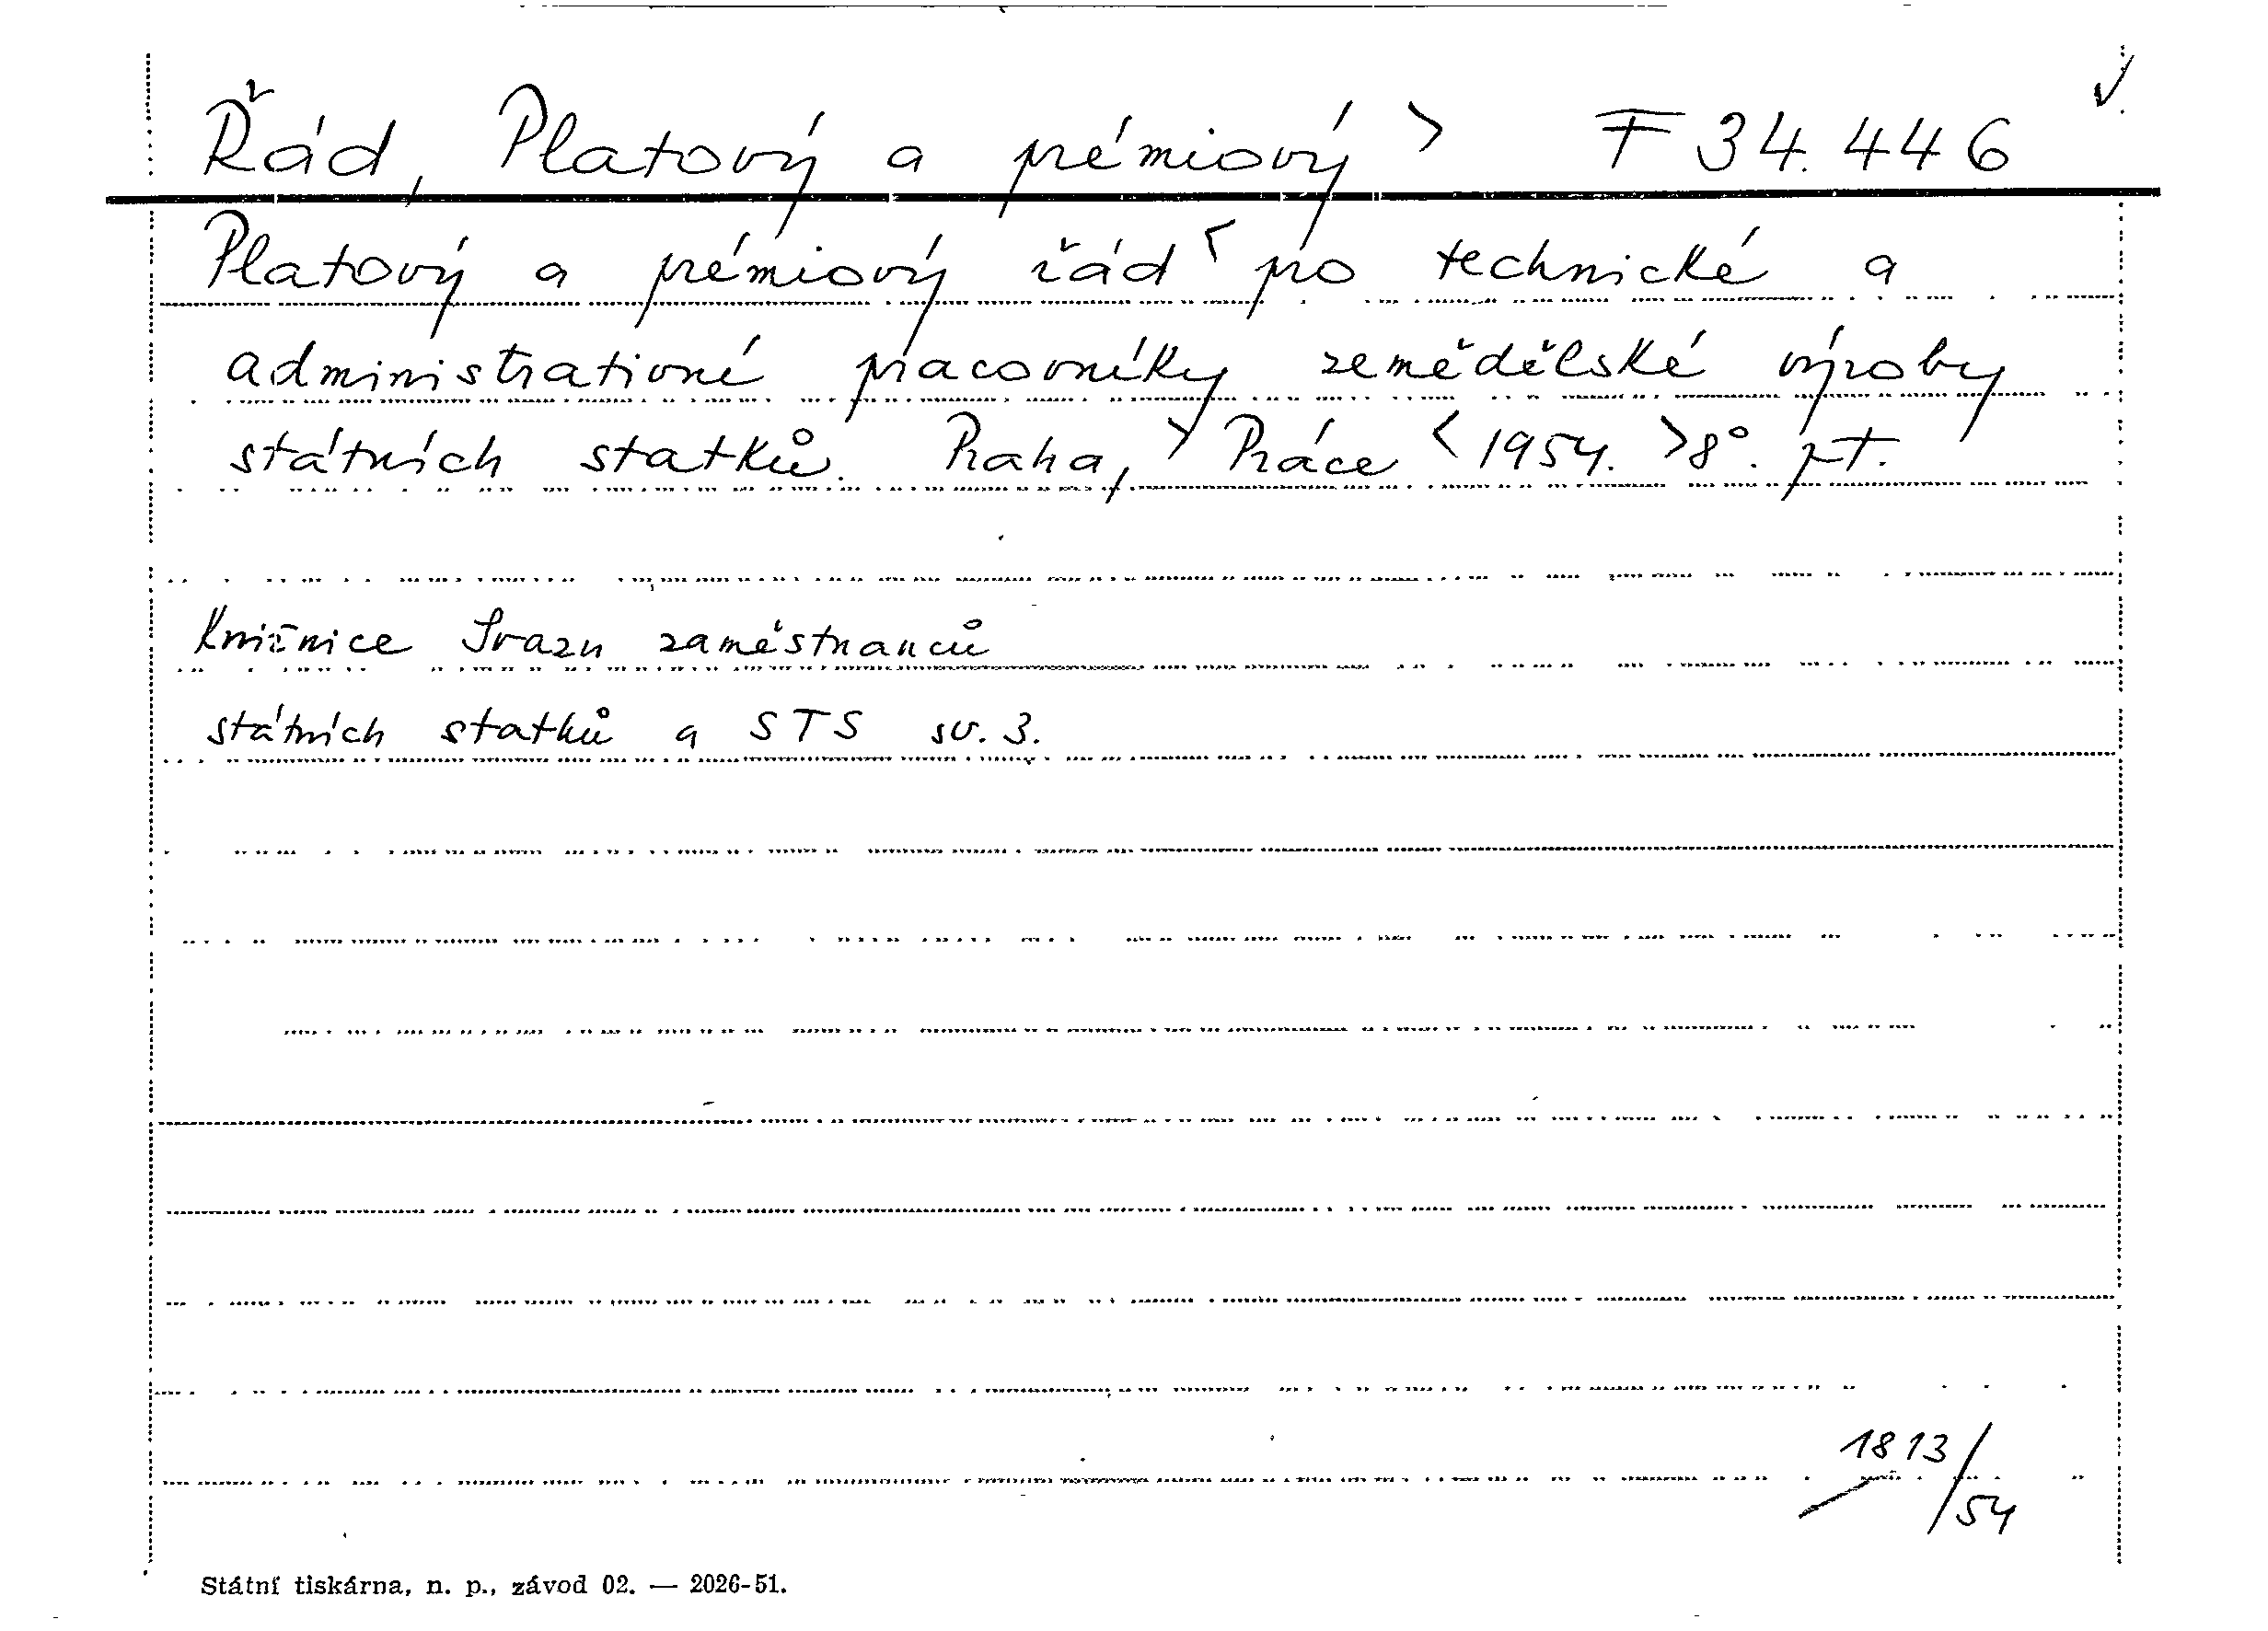 Řád, Platový a prémiový > F 34.446
Platový a prémiový řád < pro technické a
administrativné pracovníky zemědělské výroby
státních statků. Praha, > Práce < 1954. > 8°. pT.
Knižnice Svazu zaměstnanců
státních statků a STS sv. 3.
1813/54
Státní tiskárna, n. p., závod 02. — 2026-51.